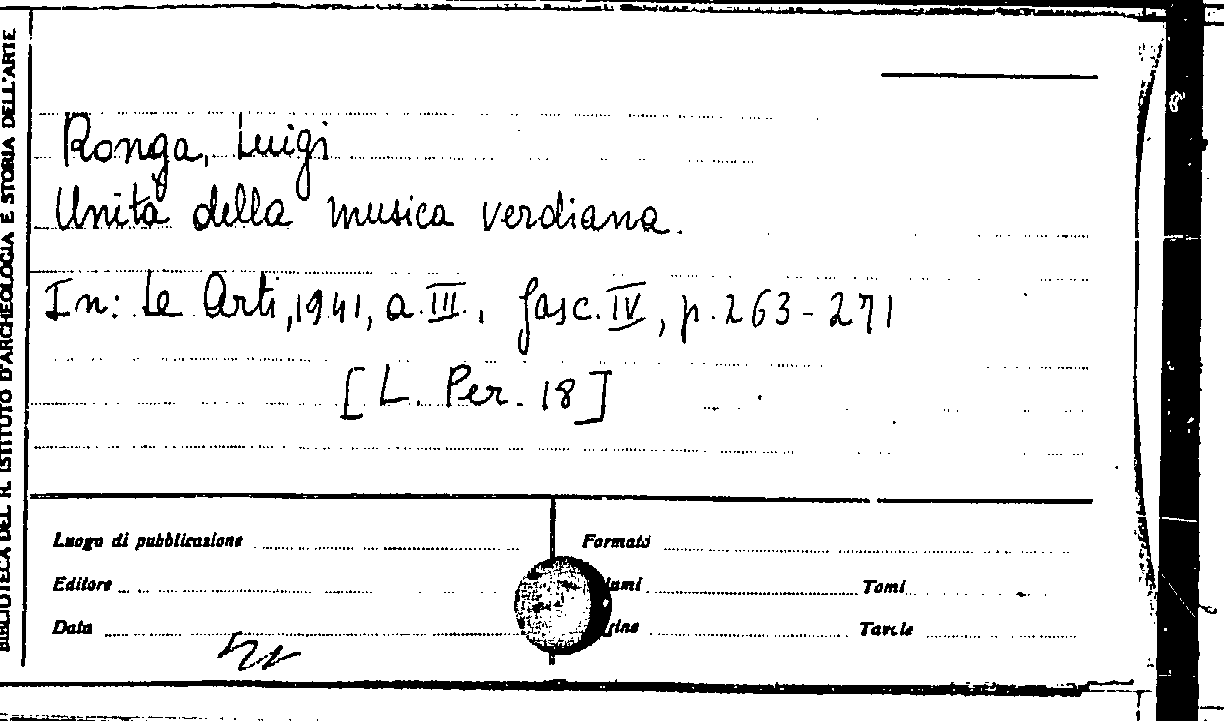 BIBLIOTECA DEL R. ISTITUTO D'ARCHEOLOGIA E STORIA DELL'ARTE
Ronga, Luigi
Unità della musica verdiana.
In: Le Arti, 1941, a. III., fasc. IV, p. 263-271
[L. Per. 18]
Luogo di pubblicazione
Formato
Editore
Tomi
Data
Tavole